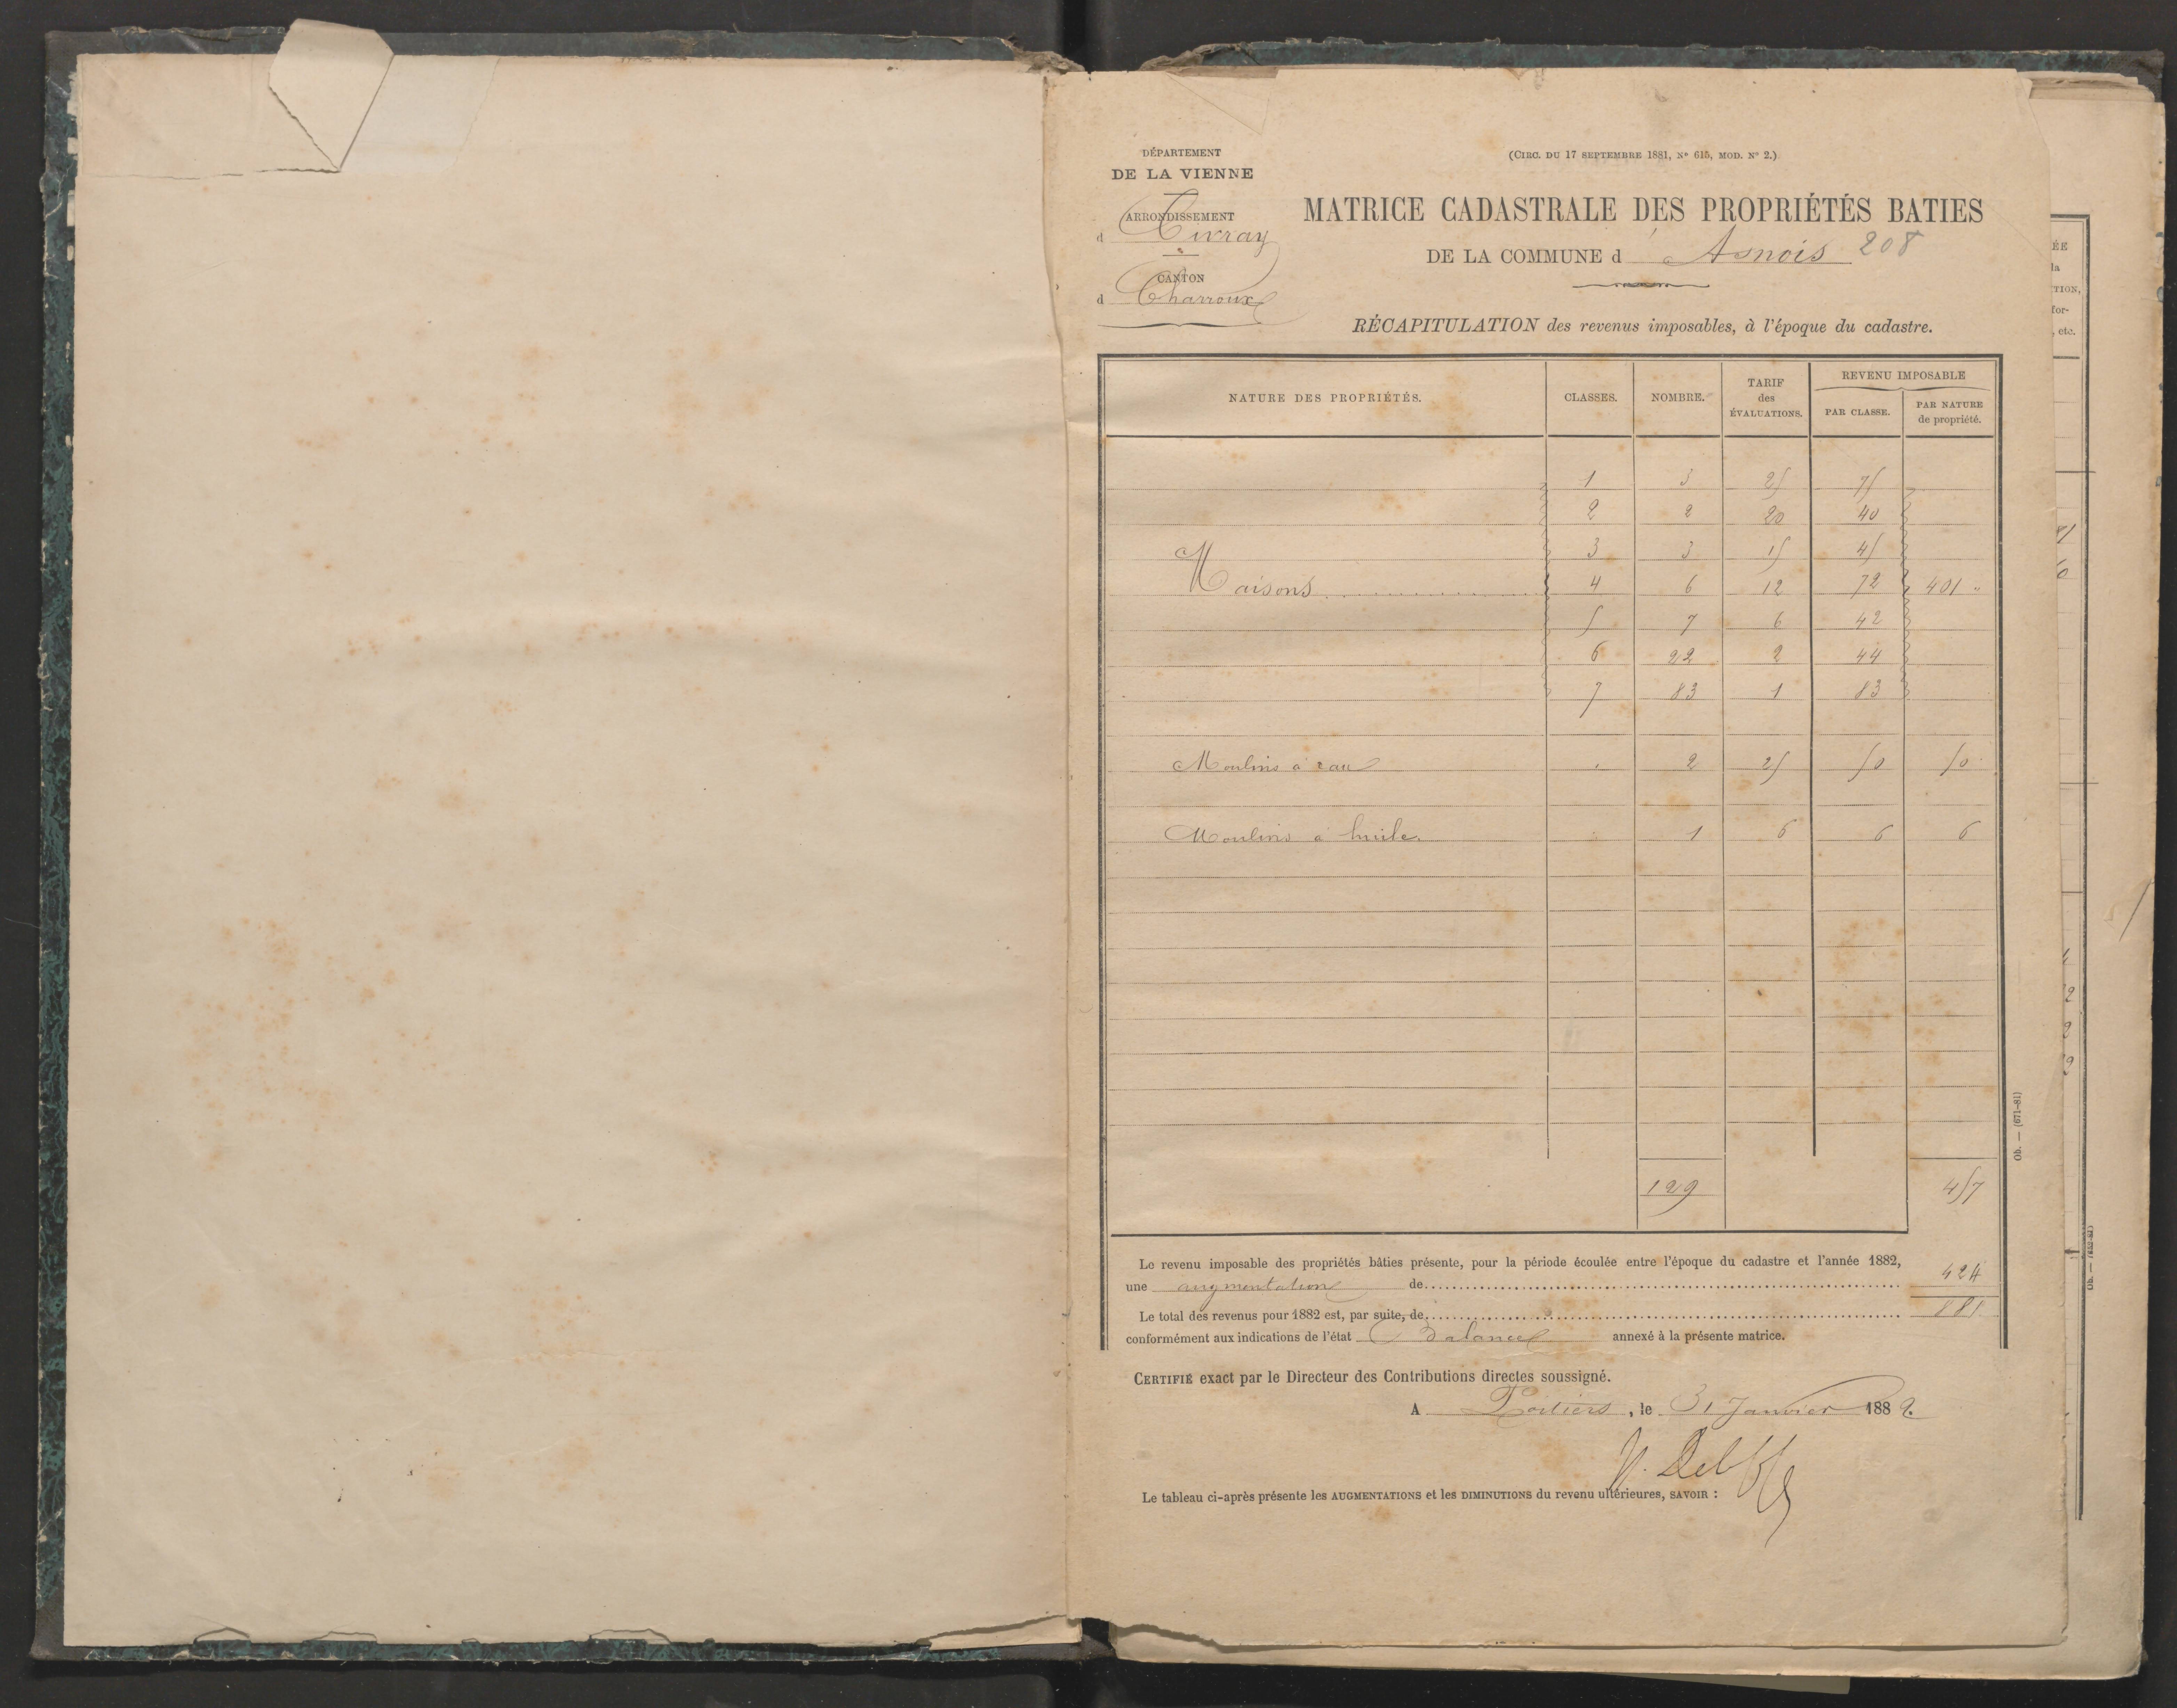 DÉPARTEMENT
DE LA VIENNE
ARRONDISSEMENT
d Civray
CANTON
d Charroux
(CIRC. DU 17 SEPTEMBRE 1881, Nº 615, MOD. Nº 2.)
MATRICE CADASTRALE DES PROPRIÉTÉS BATIES
DE LA COMMUNE d' Asnois 208
RÉCAPITULATION des revenus imposables, à l'époque du cadastre.
NATURE DES PROPRIÉTÉS. CLASSES. NOMBRE. TARIF des ÉVALUATIONS. REVENU IMPOSABLE PAR CLASSE. PAR NATURE de propriété.
1 3 25 75
2 2 20 40
3 3 15 45
Maisons 4 6 12 72 401 "
5 7 6 42
6 22 2 44
7 83 1 83
Moulins à eau 2 25 50 50
Moulins à huile. 1 6 6 6
129 457
Le revenu imposable des propriétés bâties présente, pour la période écoulée entre l'époque du cadastre et l'année 1882,
une augmentation de 424
Le total des revenus pour 1882 est, par suite, de 881
conformément aux indications de l'état Balance annexé à la présente matrice.
CERTIFIÉ exact par le Directeur des Contributions directes soussigné.
A Poitiers, le 31 Janvier 1882.
Le tableau ci-après présente les AUGMENTATIONS et les DIMINUTIONS du revenu ultérieures, SAVOIR :
Ob. — (671-81)
ÉE
la
TION,
for-
, etc.